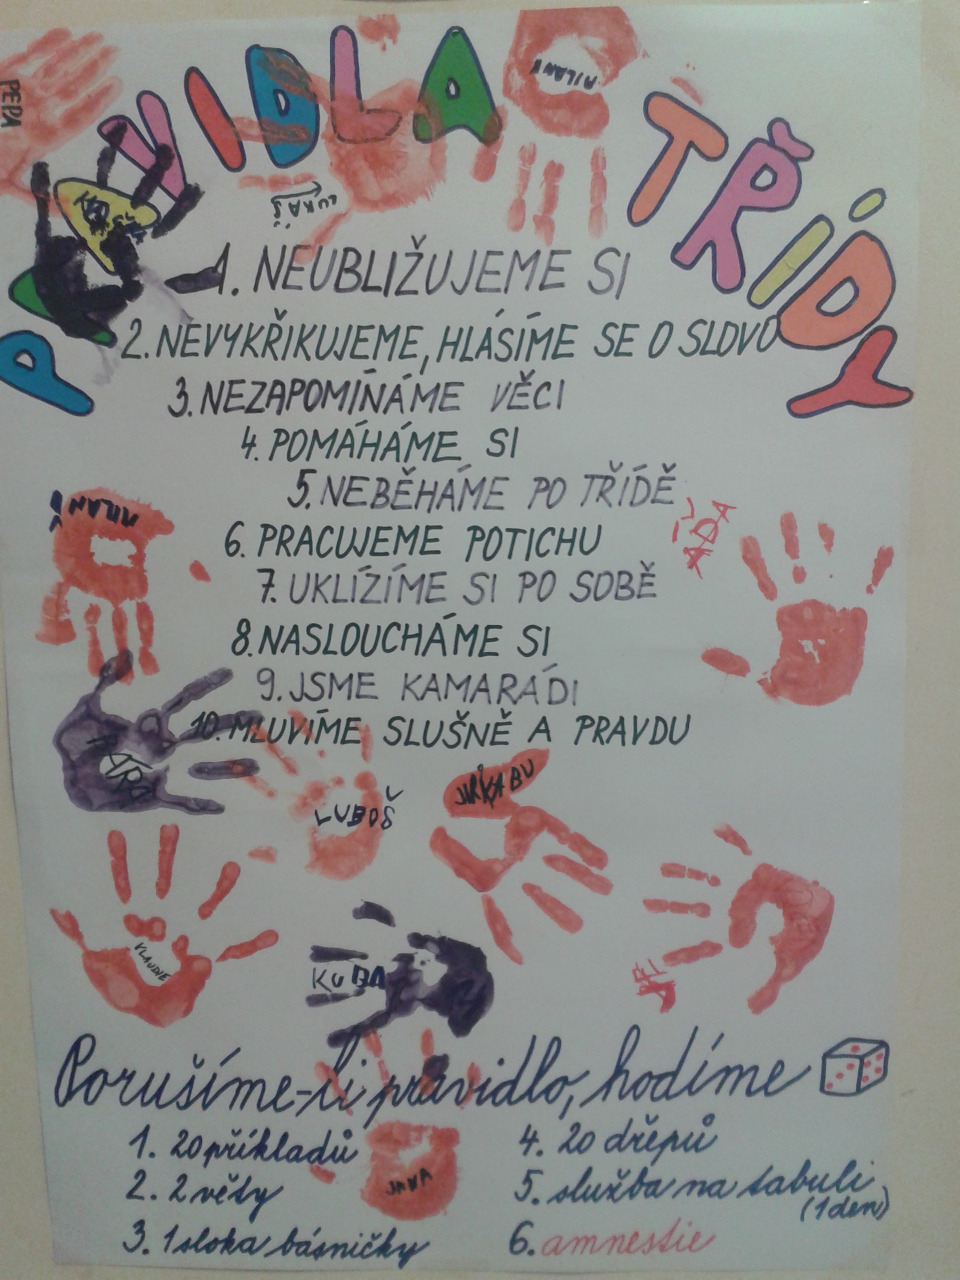 PRAVIDLA TŘÍDY
PEPA
MILANŠ
LUKÁŠ
1. NEUBLIŽUJEME SI
2. NEVYKŘIKUJEME, HLÁSÍME SE O SLOVO
3. NEZAPOMÍNÁME VĚCI
4. POMÁHÁME SI
5. NEBĚHÁME PO TŘÍDĚ
6. PRACUJEME POTICHU
7. UKLÍZÍME SI PO SOBĚ
8. NASLOUCHÁME SI
9. JSME KAMARÁDI
10. MLUVÍME SLUŠNĚ A PRAVDU
LUBOŠ
JIRKA BU
KUBA
Porušíme-li pravidlo, hodíme
1. 20 příkladů
2. 2 věty
3. 1 sloka básničky
4. 20 dřepů
5. služba na tabuli (1 den)
6. amnestie